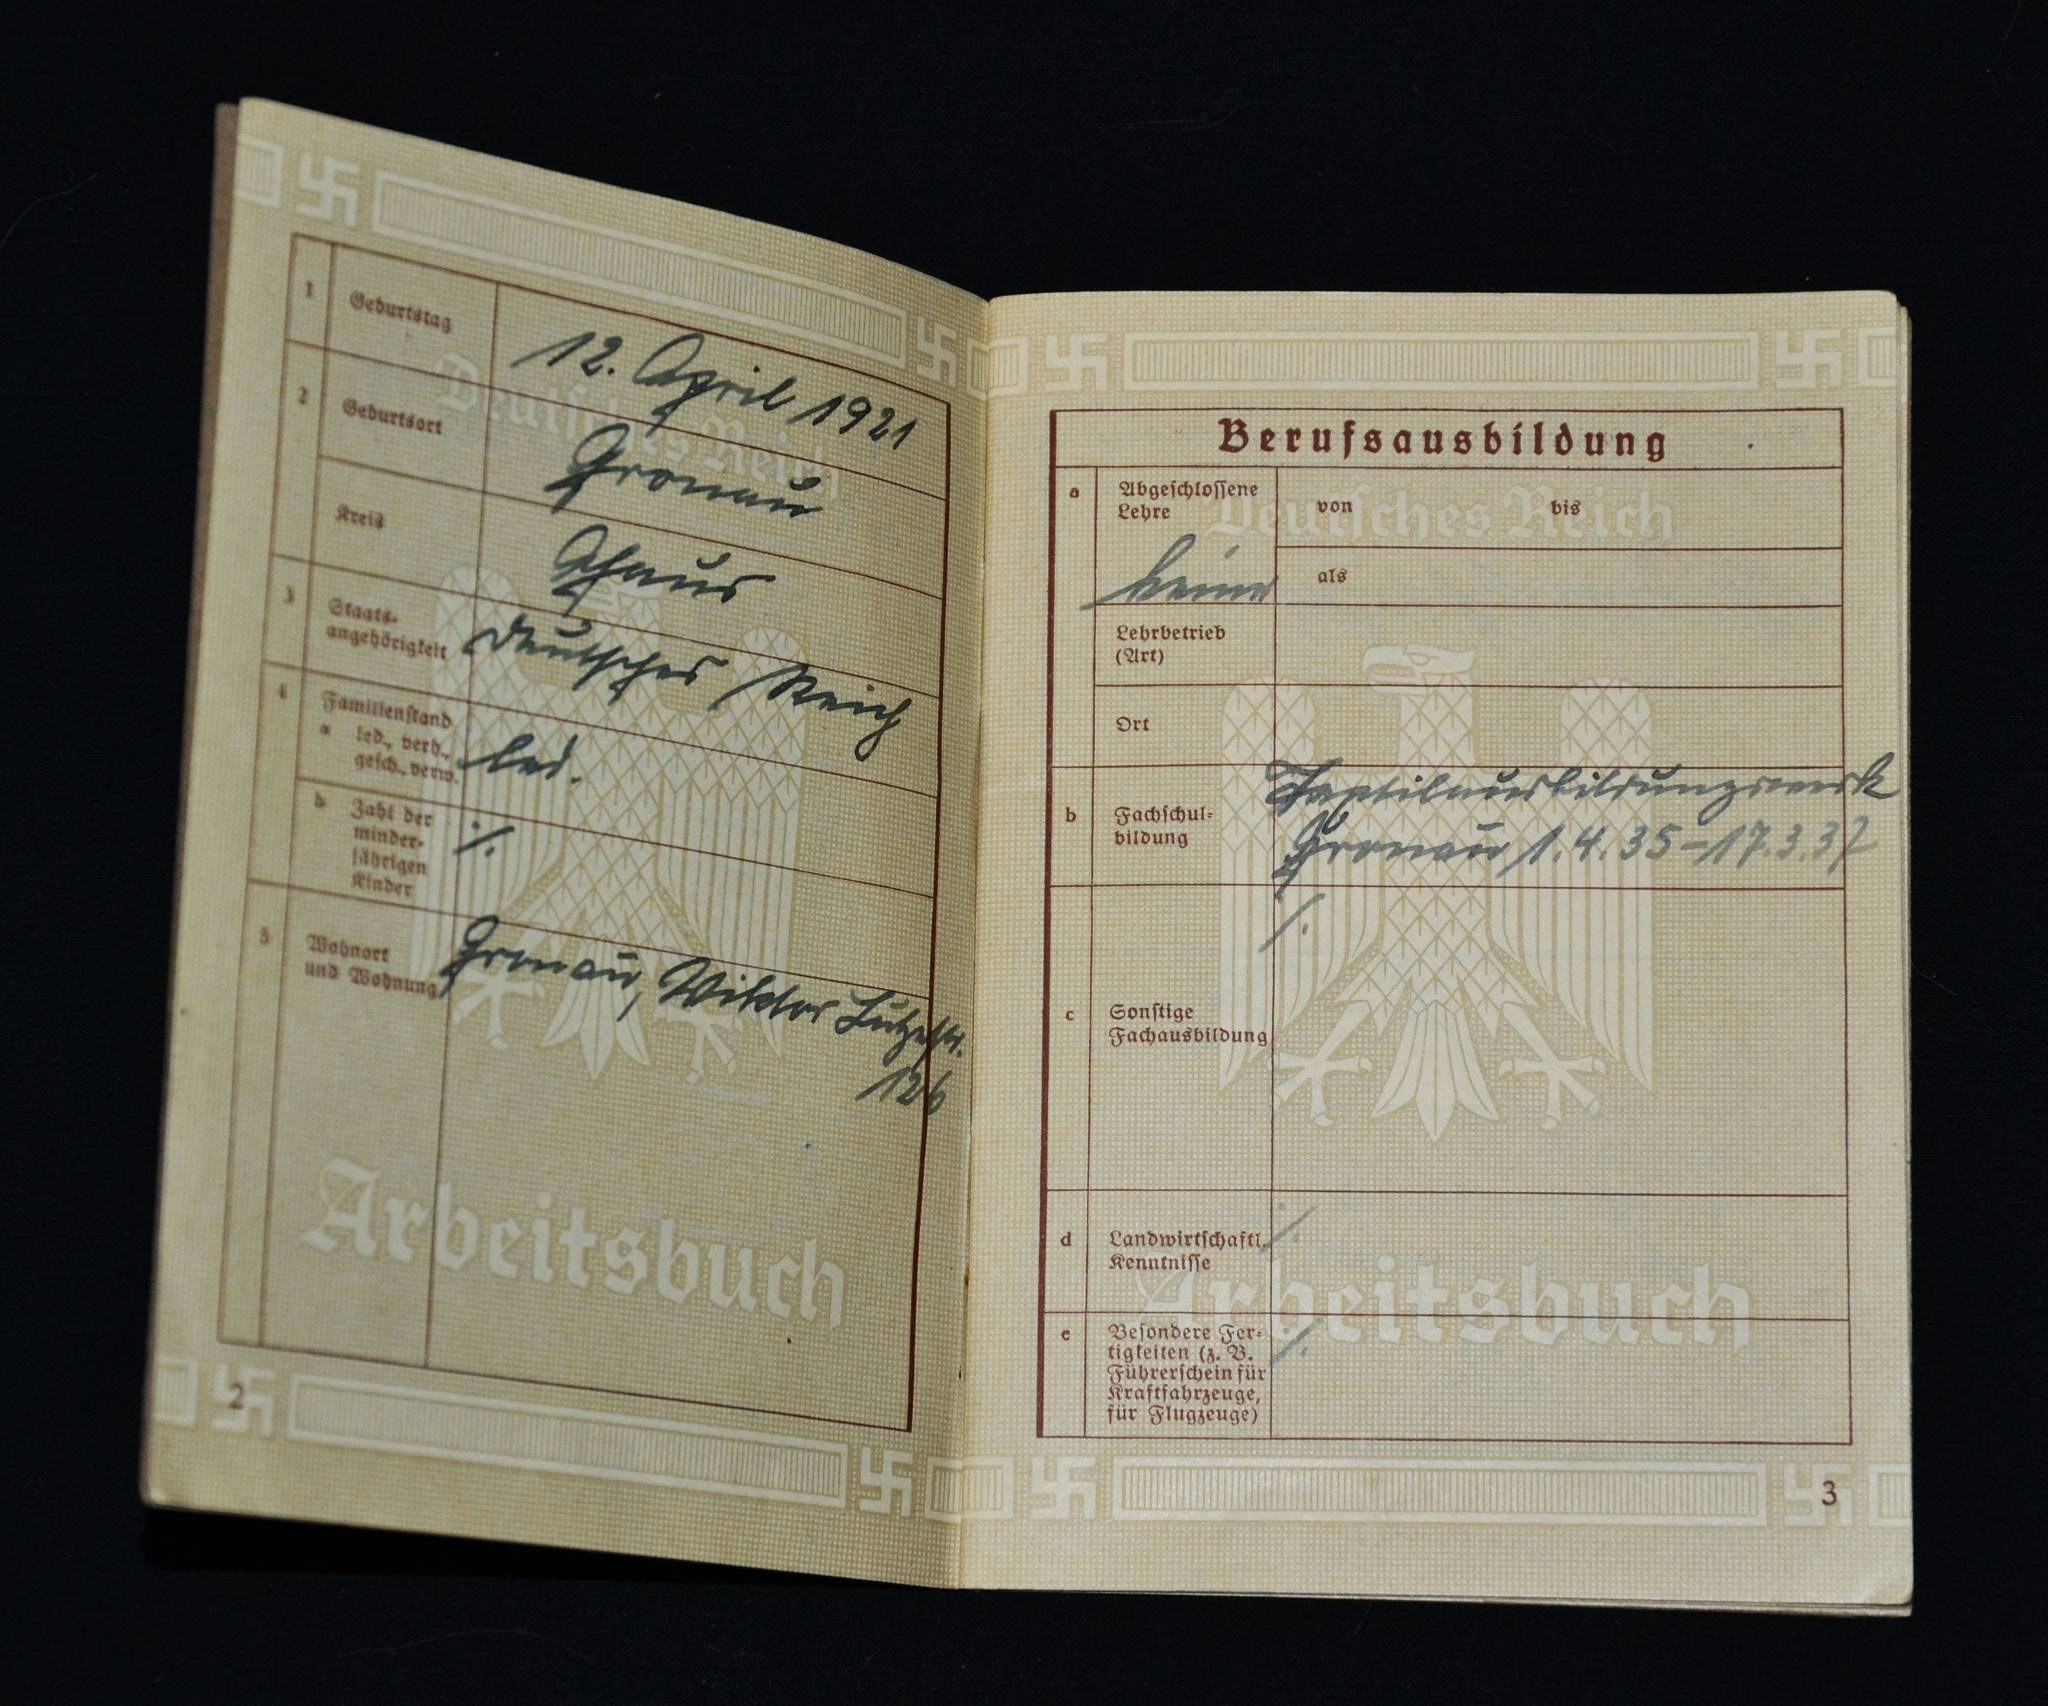 1 Geburtstag 12. April 1921
2 Geburtsort Gronau
Kreis Ahaus
3 Staats-
angehörigkeit Deutsches Reich
4 Familienstand
a led., verh.,
gesch., verw. led.
b Zahl der
minder-
jährigen
Kinder ./.
5 Wohnort
und Wohnung Gronau, Viktor Lutzestr.
126
Deutsches Reich
Arbeitsbuch
2
Berufsausbildung
a Abgeschlossene
Lehre
keine
von bis
als
Lehrbetrieb
(Art)
Ort
b Fachschul-
bildung
Textilausbildungswerk
Gronau 1.4.35-17.3.37
c Sonstige
Fachausbildung
./.
d Landwirtschaftl.
Kenntnisse
./.
e Besondere Fer-
tigkeiten (z. B.
Führerschein für
Kraftfahrzeuge,
für Flugzeuge)
./.
Deutsches Reich
Arbeitsbuch
3